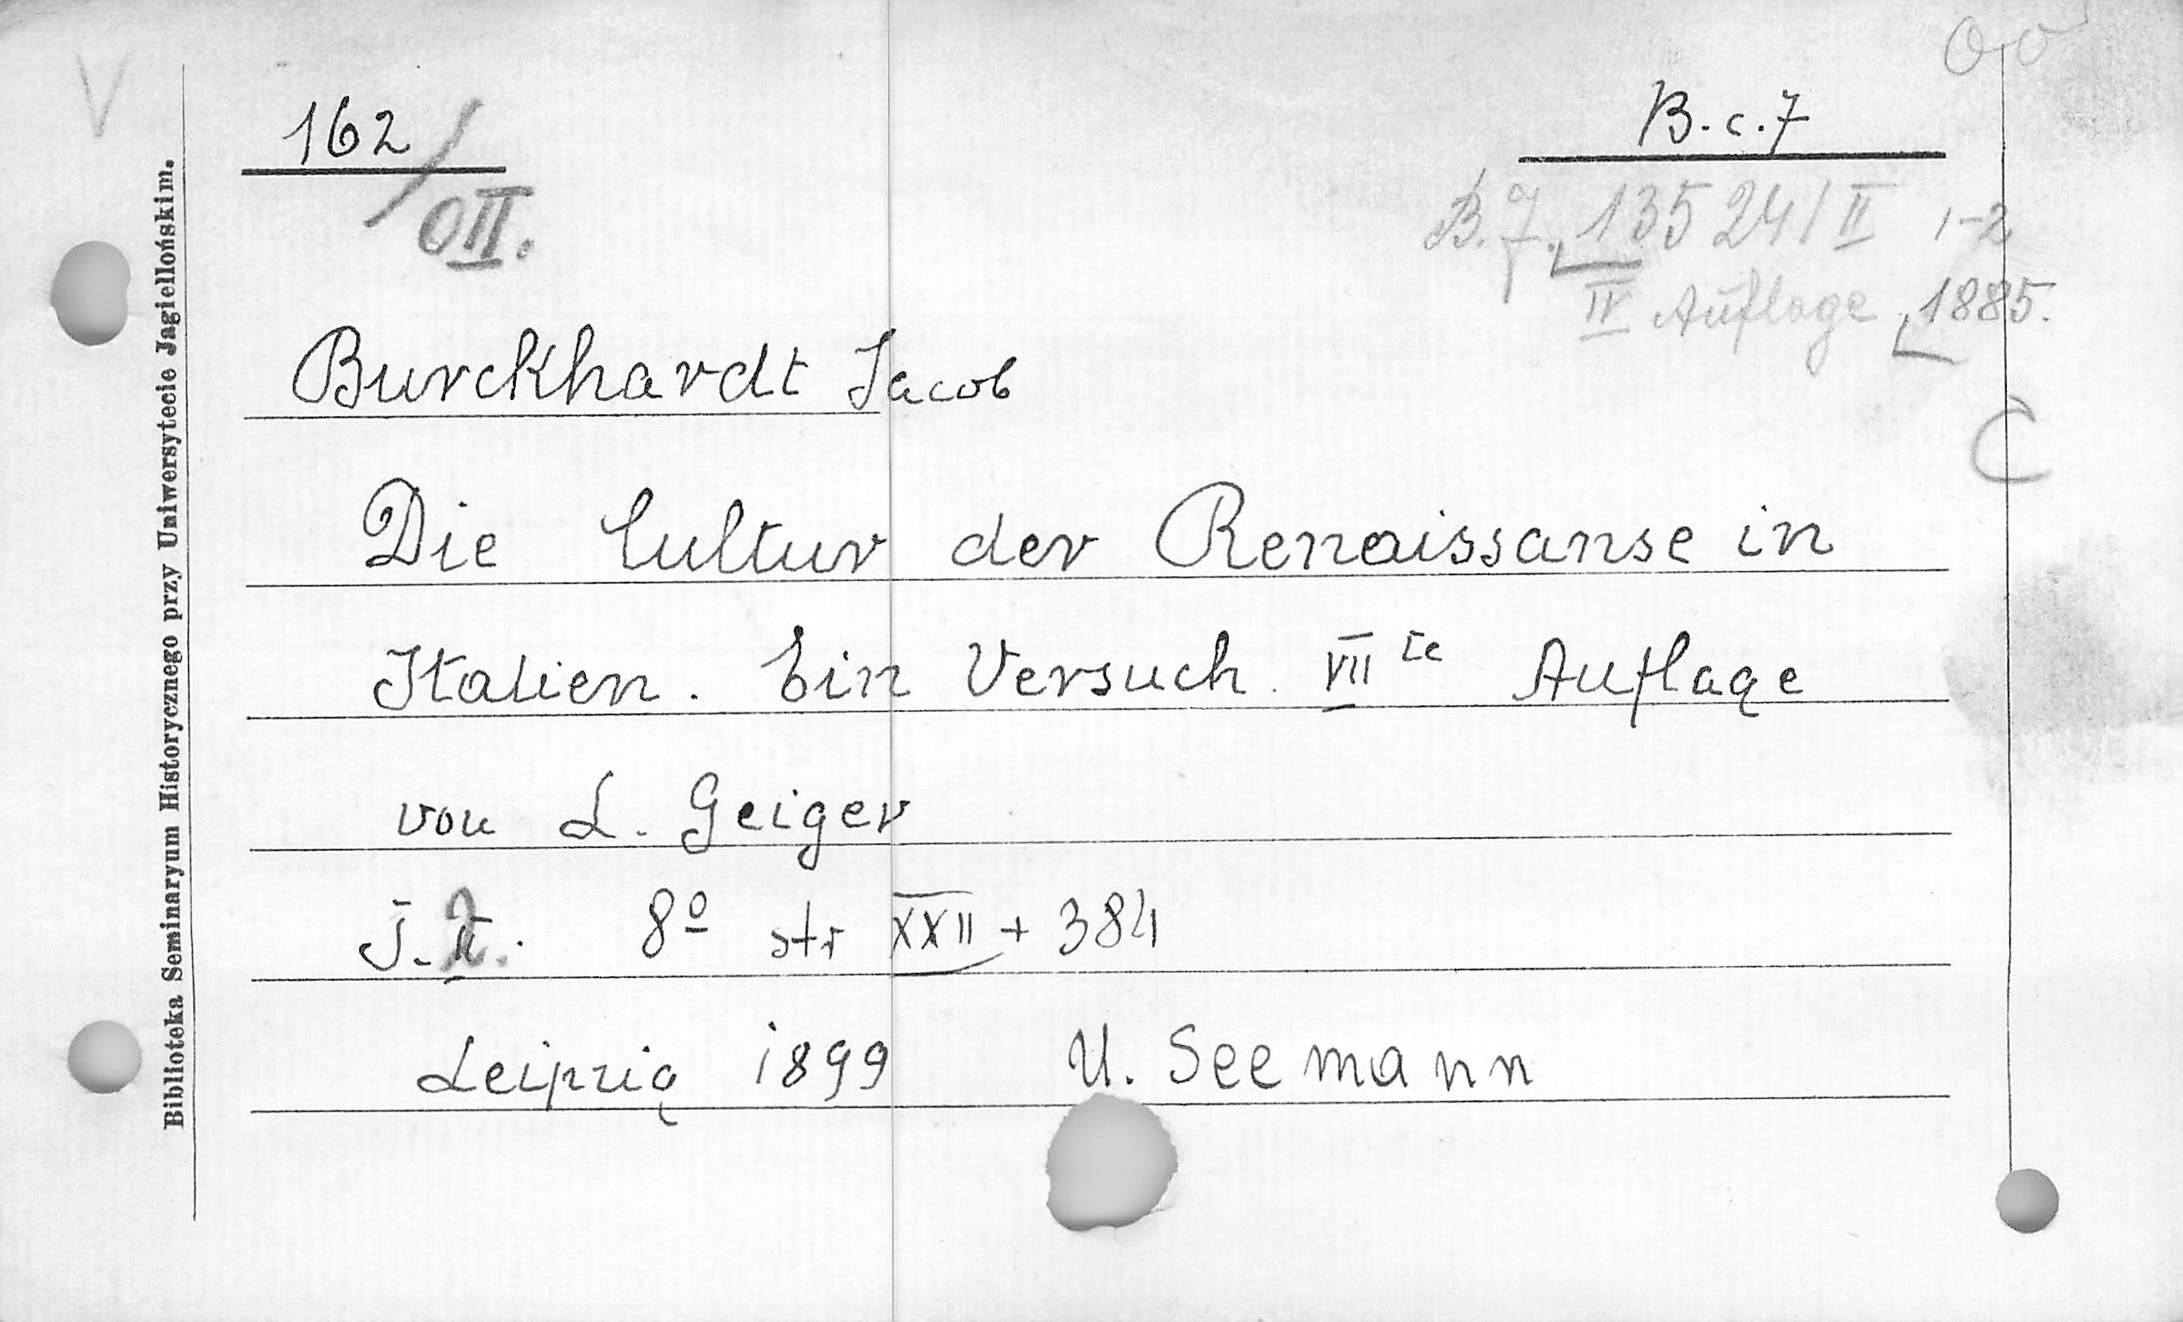 V
162/OII.
B.c.7
B.7. 13524/II 1-2
IV Auflage 1885.
Burckhardt Jacob
C
Die Cultur der Renaissanse in
Italien. Ein Versuch. VII te Auflage
von L. Geiger
8º str XXII + 384
Leipzig 1899 U. Seemann
Biblioteka Seminaryum Historycznego przy Uniwersytecie Jagiellońskim.